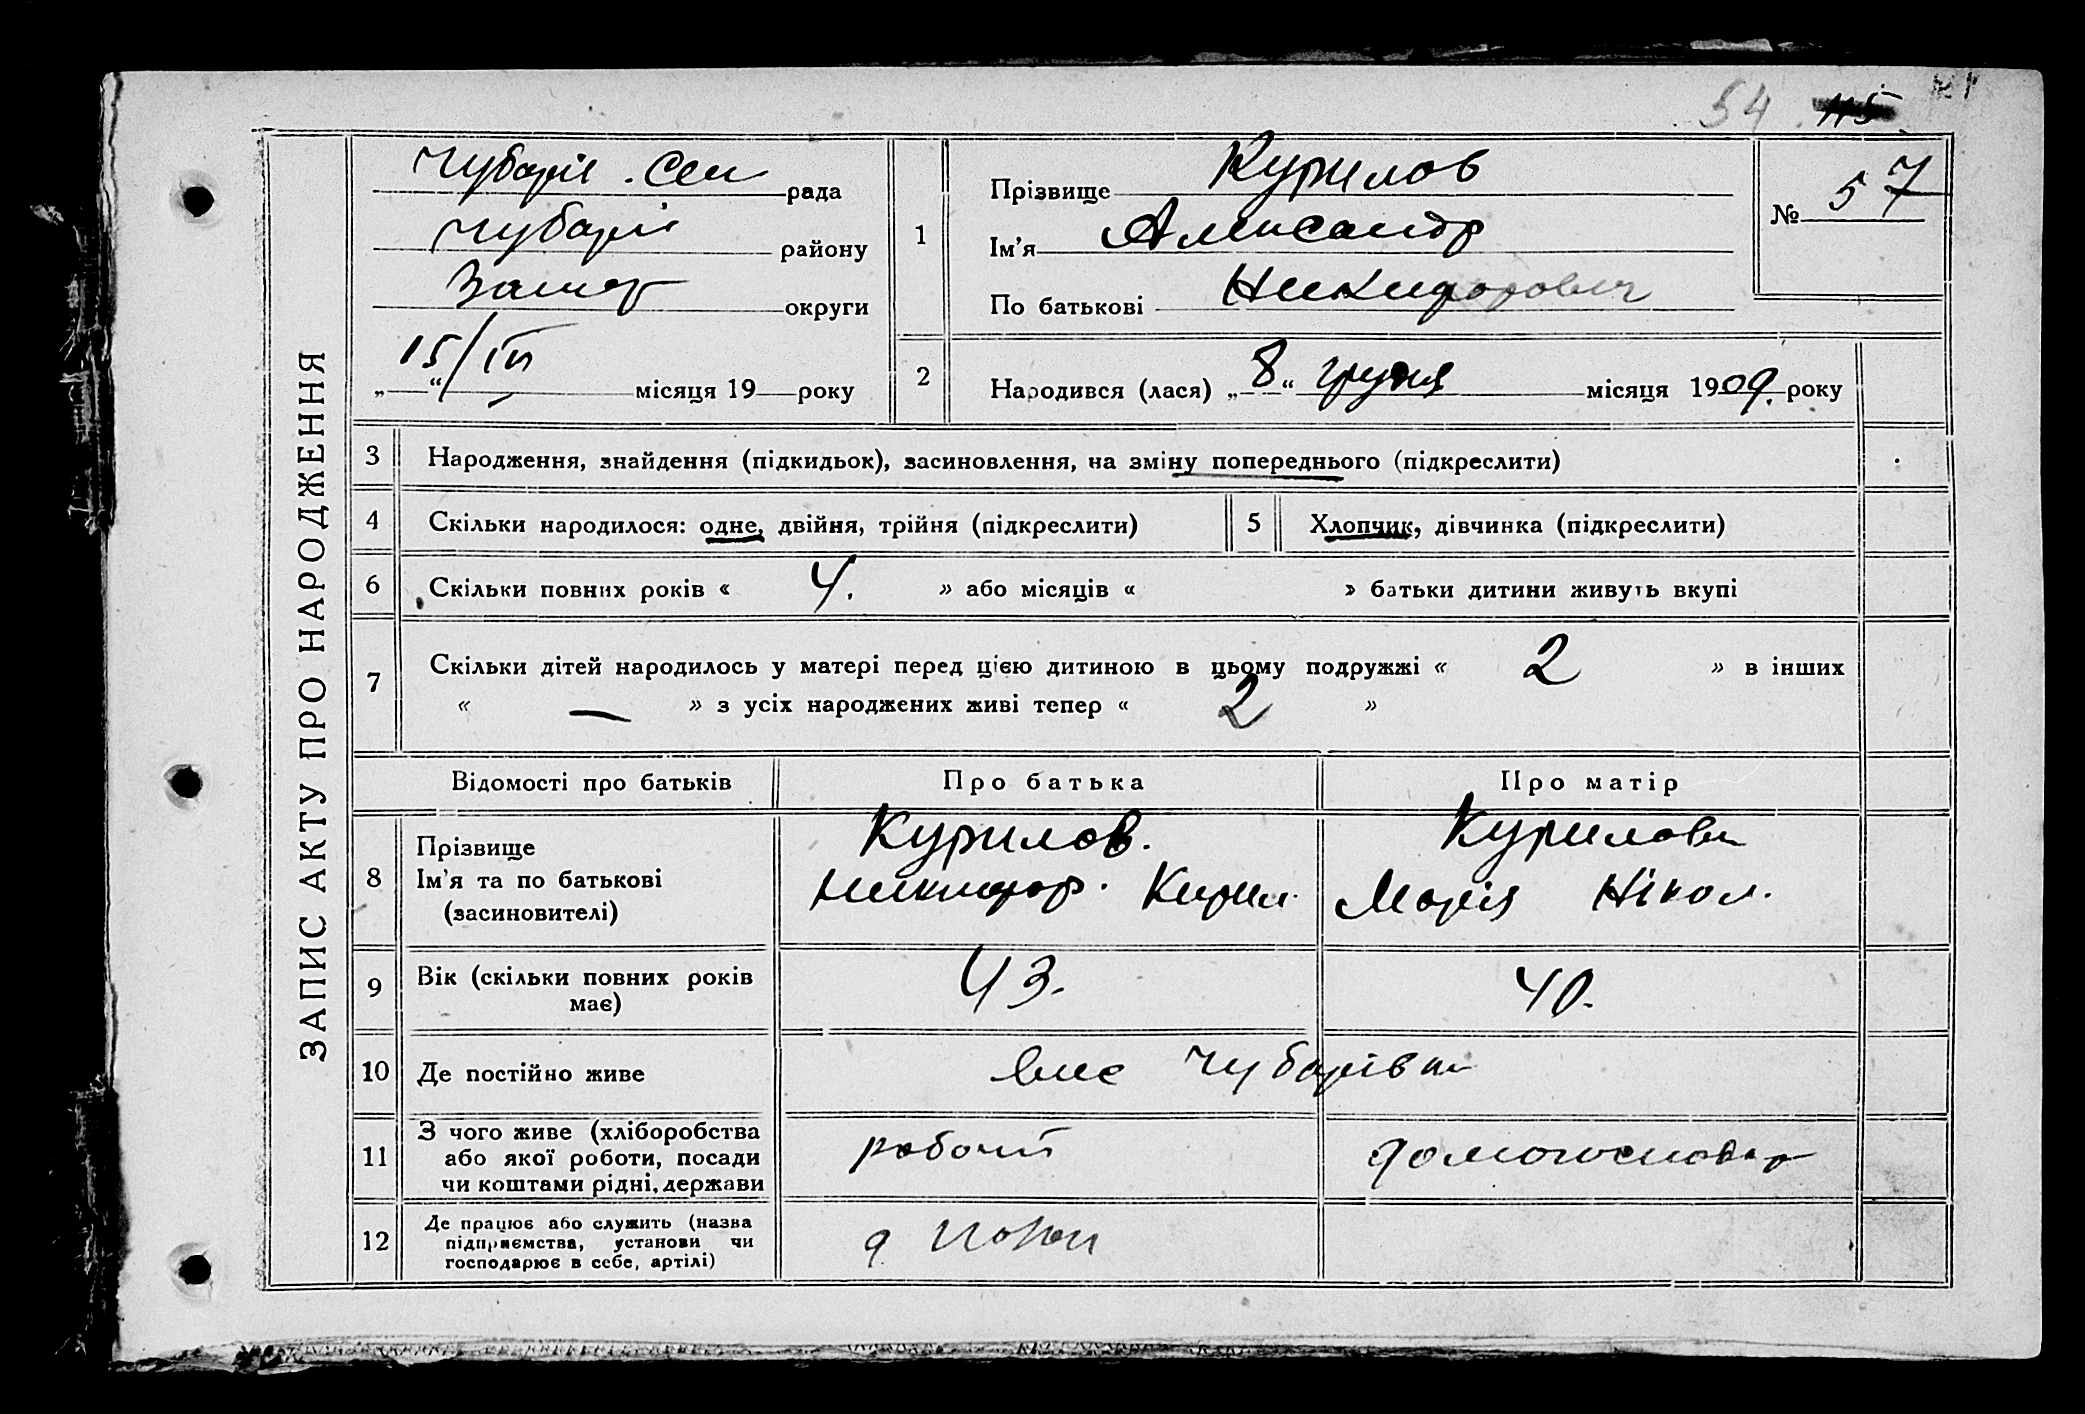 54 115
ЗАПИС АКТУ ПРО НАРОДЖЕННЯ
Чубарів. Сел рада
Чубарів району
Запор округи
15/III
„ “ місяця 19 року
1
Прізвище Курилов
Ім'я Александр
По батькові Никифорович
№ 57
2
Народився (лася) „8“ грудня місяця 1909. року
3 Народження, знайдення (підкидьок), засиновлення, на зміну попереднього (підкреслити)
4 Скільки народилося: одне, двійня, трійня (підкреслити)
5 Хлопчик, дівчинка (підкреслити)
6 Скільки повних років « 4. » або місяців « » батьки дитини живуть вкупі
7 Скільки дітей народилось у матері перед цією дитиною в цьому подружжі « 2 » в інших
« — » з усіх народжених живі тепер « 2 »
Відомості про батьків Про батька Про матір
8 Прізвище
Ім'я та по батькові
(засиновителі)
Курилов.
Никифор. Кирил.
Курилова
Марія Нікол.
9 Вік (скільки повних років
має)
43. 40.
10 Де постійно живе
Чубарівка
11 З чого живе (хліборобства
або якої роботи, посади
чи коштами рідні, держави
робочий домогосподар
12 Де працює або служить (назва
підприємства, установи чи
господарює в себе, артілі)